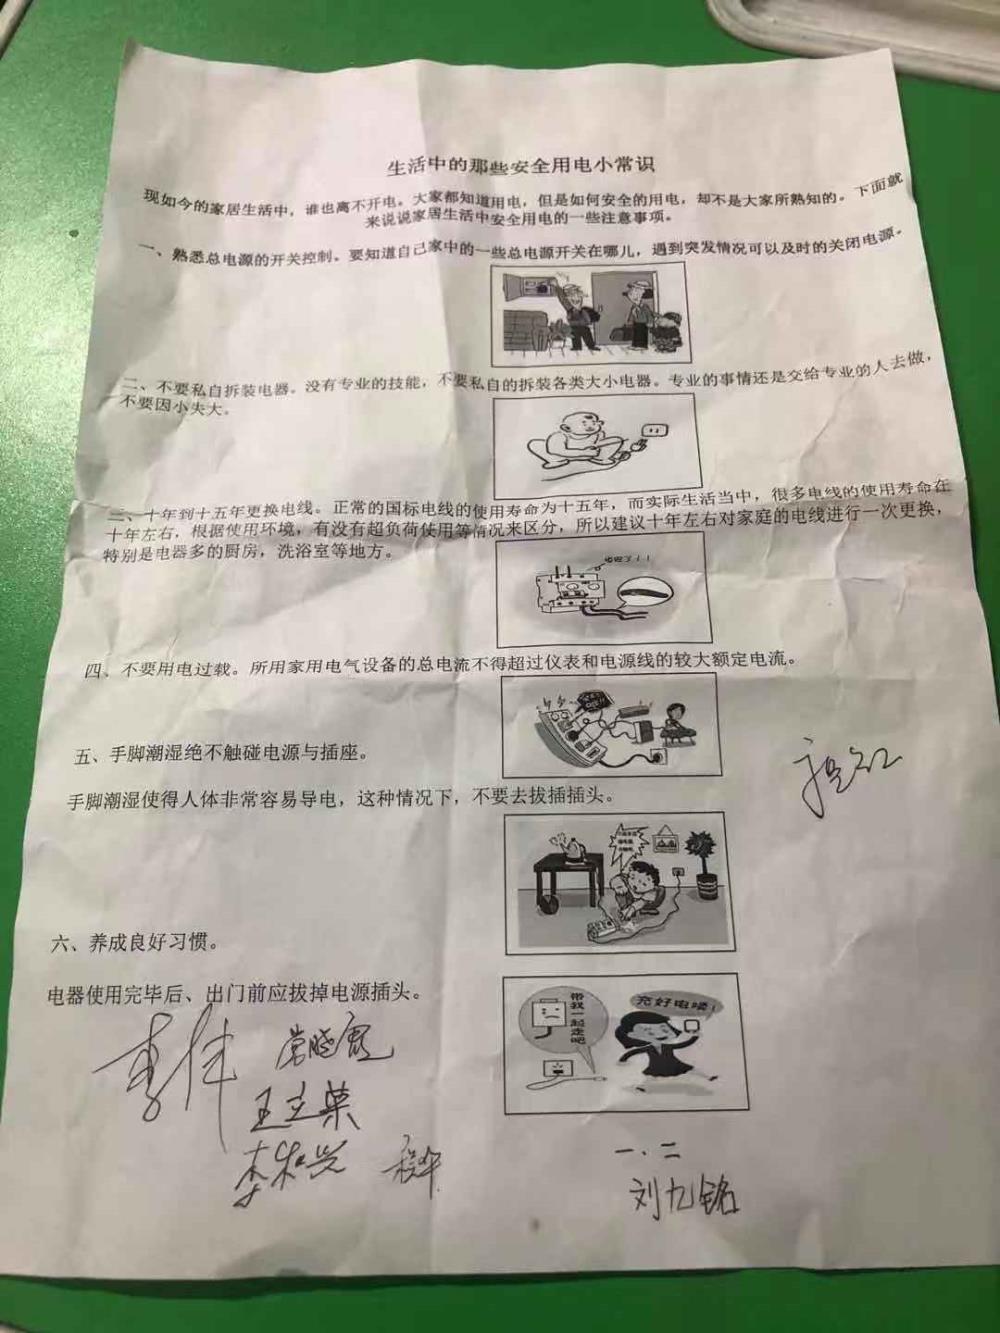 生活中的那些安全用电小常识
现如今的家居生活中，谁也离不开电。大家都知道用电，但是如何安全的用电，却不是大家所熟知的。下面就
来说说家居生活中安全用电的一些注意事项。
一、熟悉总电源的开关控制。要知道自己家中的一些总电源开关在哪儿，遇到突发情况可以及时的关闭电源。
二、不要私自拆装电器。没有专业的技能，不要私自的拆装各类大小电器。专业的事情还是交给专业的人去做，
不要因小失大。
三、十年到十五年更换电线。正常的国标电线的使用寿命为十五年，而实际生活当中，很多电线的使用寿命在
十年左右，根据使用环境，有没有超负荷使用等情况来区分，所以建议十年左右对家庭的电线进行一次更换，
特别是电器多的厨房，洗浴室等地方。
四、不要用电过载。所用家用电气设备的总电流不得超过仪表和电源线的较大额定电流。
五、手脚潮湿绝不触碰电源与插座。
手脚潮湿使得人体非常容易导电，这种情况下，不要去拔插插头。
六、养成良好习惯。
电器使用完毕后、出门前应拔掉电源插头。
带我一起走吧
充好电喽！
李伟
王立菓
一、二
刘九铭